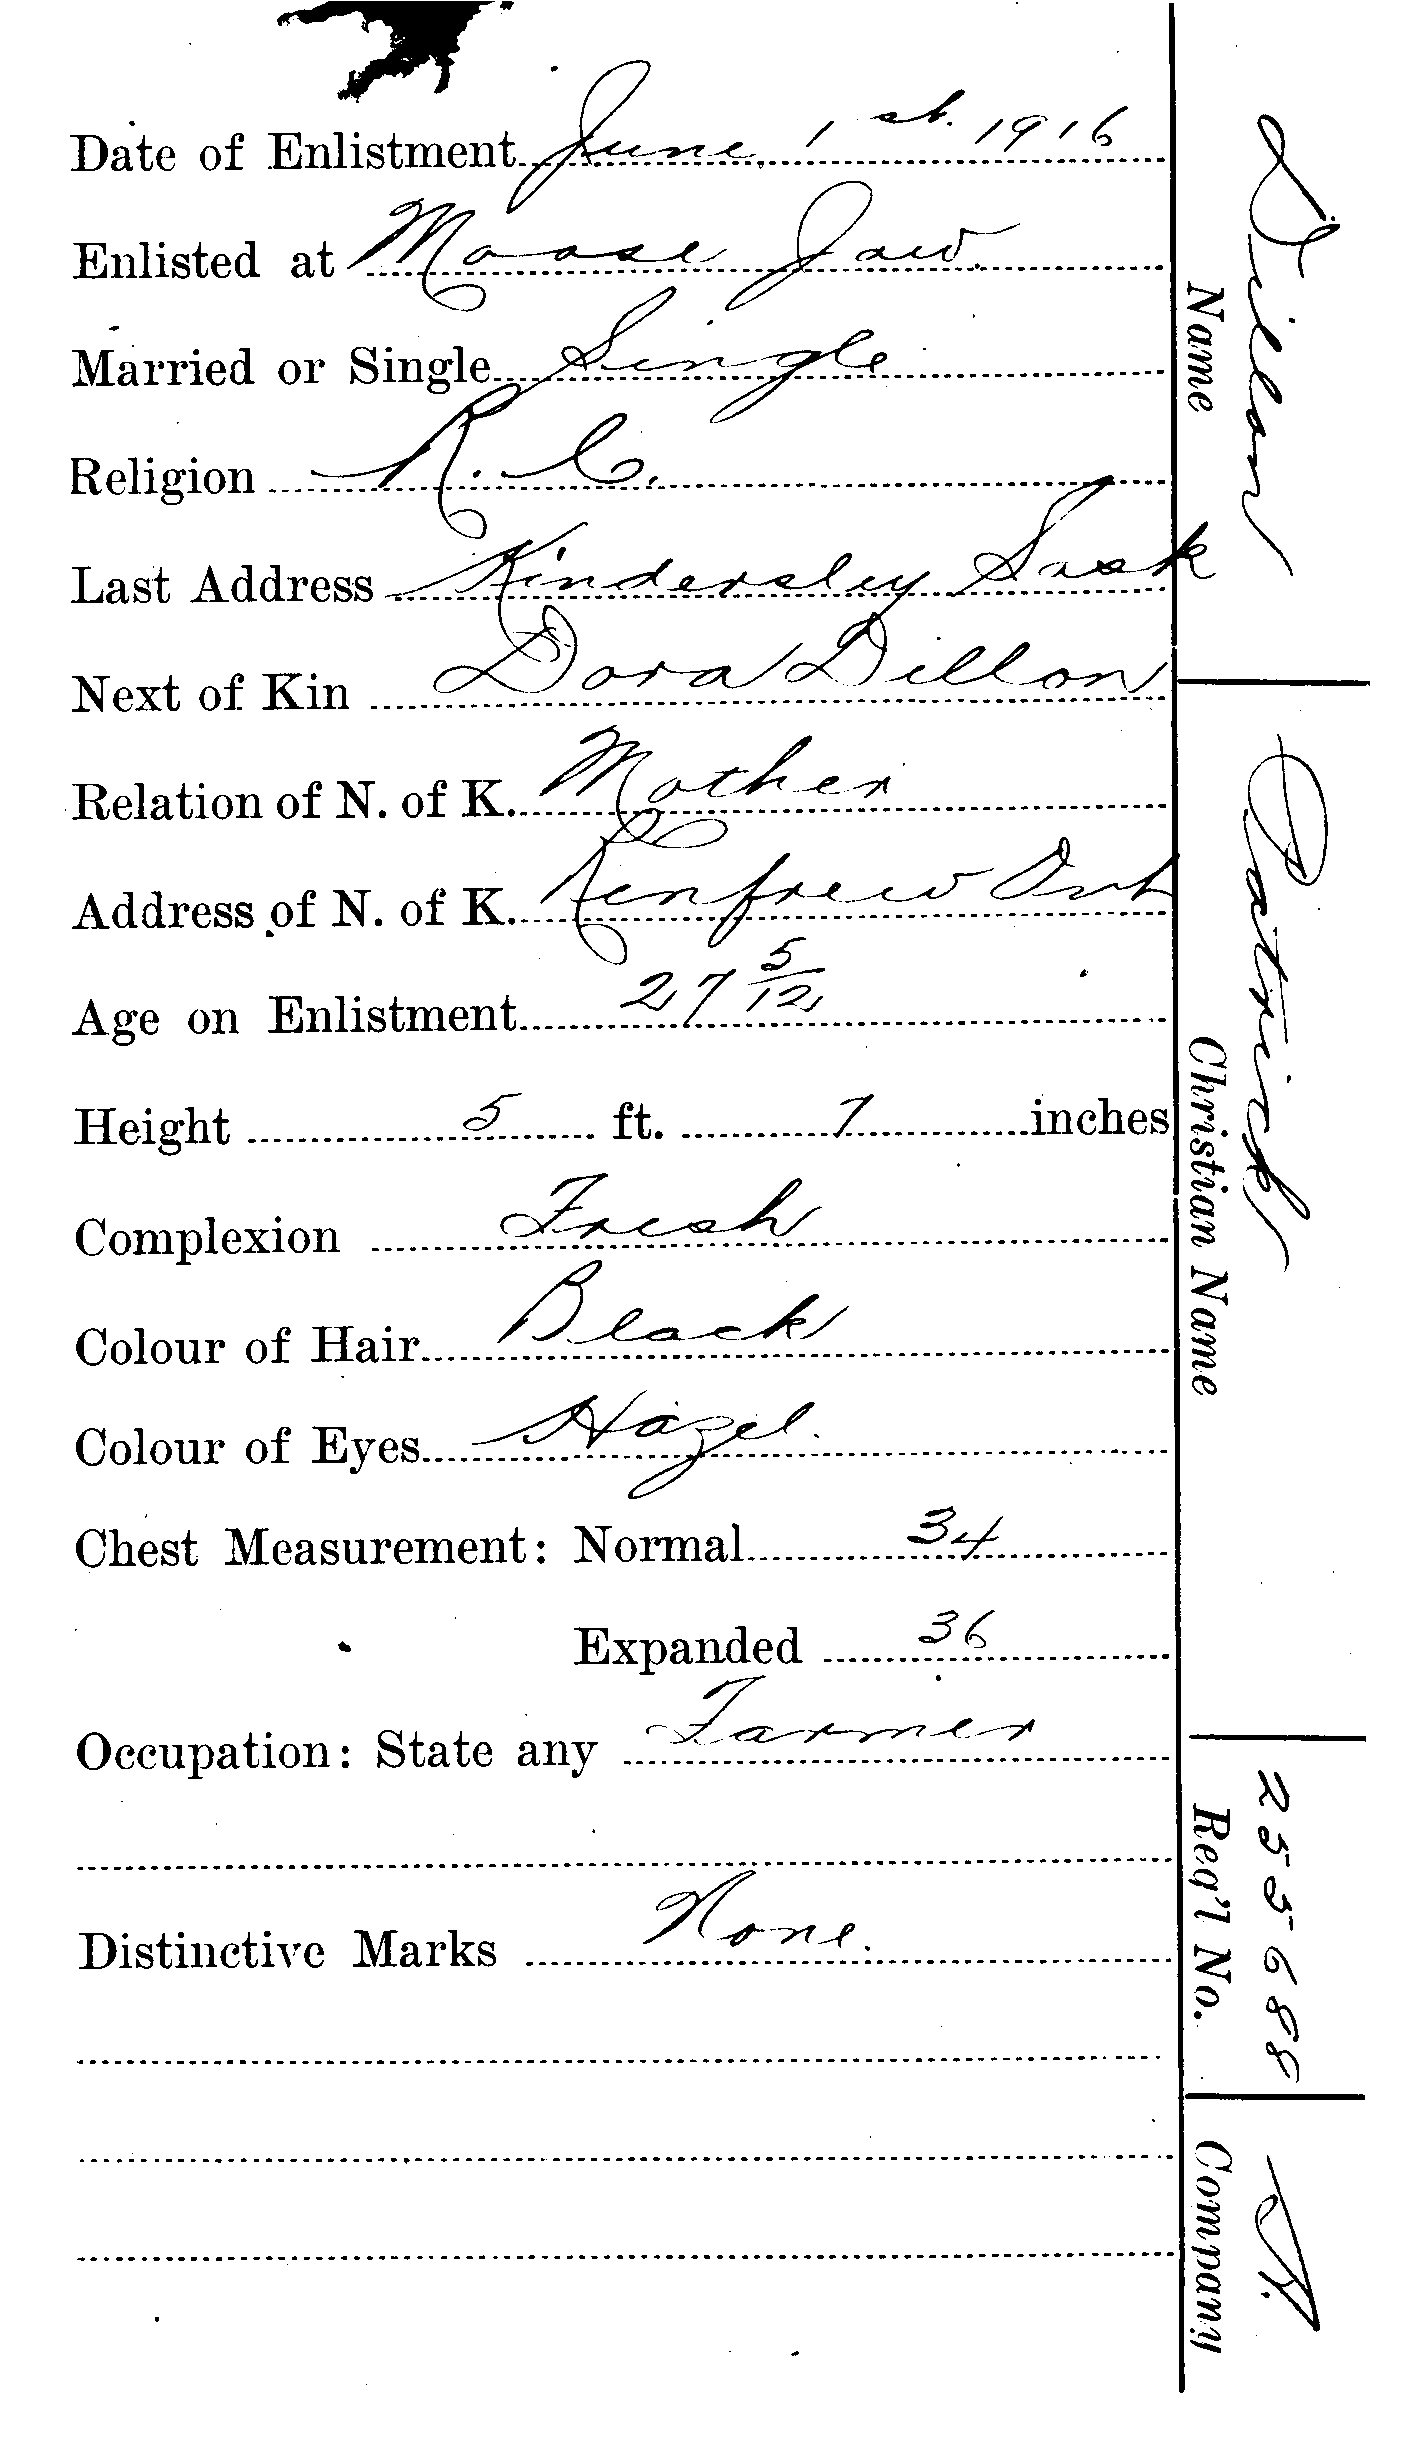 Date of Enlistment June 1st. 1916
Enlisted at Moose Jaw.
Married or Single Single
Religion R. C.
Last Address Kindersley Sask
Next of Kin Dora Dillon
Relation of N. of K. Mother
Address of N. of K. Renfrew Ont
Age on Enlistment 27 5/12
Height 5 ft. 7 inches
Complexion Fresh
Colour of Hair Black
Colour of Eyes Hazel.
Chest Measurement: Normal 34
Expanded 36
Occupation: State any Farmer
Distinctive Marks None.
Dillon
Name
Patrick
Christian Name
255688
Reg'l No.
A.
Company